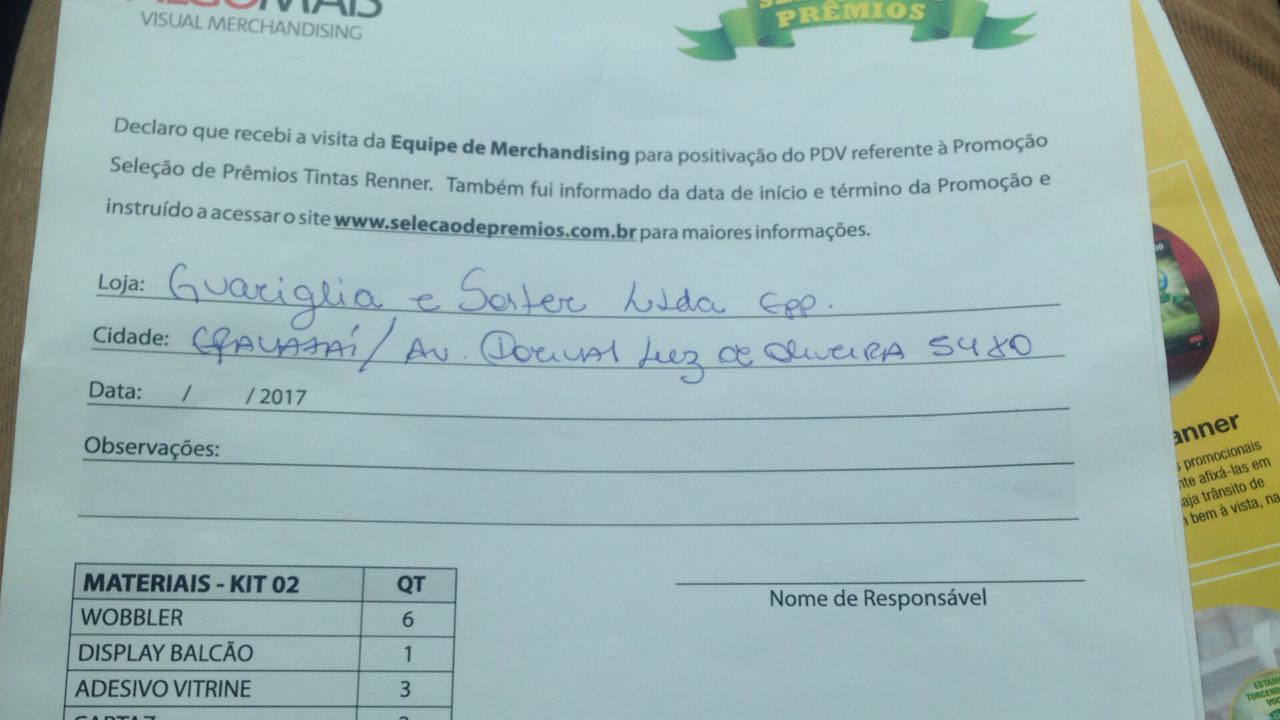 MAIS
VISUAL MERCHANDISING
PRÊMIOS
Declaro que recebi a visita da Equipe de Merchandising para positivação do PDV referente à Promoção
Seleção de Prêmios Tintas Renner. Também fui informado da data de início e término da Promoção e
instruído a acessar o site www.selecaodepremios.com.br para maiores informações.
Loja: Guariglia e Soster Ltda Epp.
Cidade: GRAVATAÍ / AV. DORIVAL LUZ DE OLIVEIRA 5480
Data: / / 2017
Observações:
MATERIAIS - KIT 02 QT
WOBBLER 6
DISPLAY BALCÃO 1
ADESIVO VITRINE 3
Nome de Responsável
anner
promocionais
afixá-las em
trânsito de
bem à vista, na